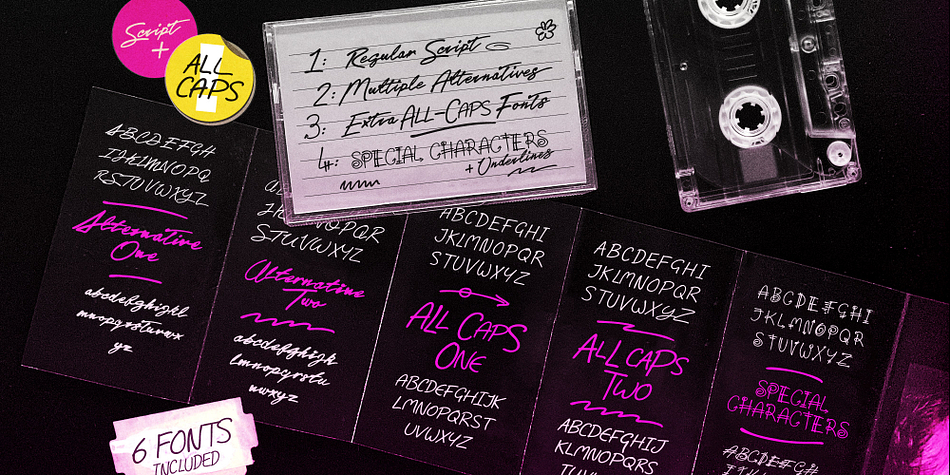 Script
+
ALL
CAPS
1: Regular Script
2: Multiple Alternatives
3: Extra ALL-CAPS Fonts
4: SPECIAL CHARACTERS
+ Underlines
ABCDEFGH
IJKLMNOPQ
RSTUVWXYZ
Alternative
One
abcdefghijkl
mnopqrstuvwx
yz
JKLMNOPQR
STUVWXYZ
Alternative
Two
abcdefghijk
lmnopqrstu
vwxyz
ABCDEFGHI
JKLMNOPQR
STUVWXYZ
ALL CAPS
ONE
ABCDEFGHIJK
LMNOPQRST
UVWXYZ
ABCDEFGHI
JKLMNOPQR
STUVWXYZ
ALL CAPS
TWO
ABCDEFGHIJ
KLMNOPQRS
ABCDEFGHI
JKLMNOPQR
STUVWXYZ
SPECIAL
CHARACTERS
ABCDEFGHI
6 FONTS
INCLUDED